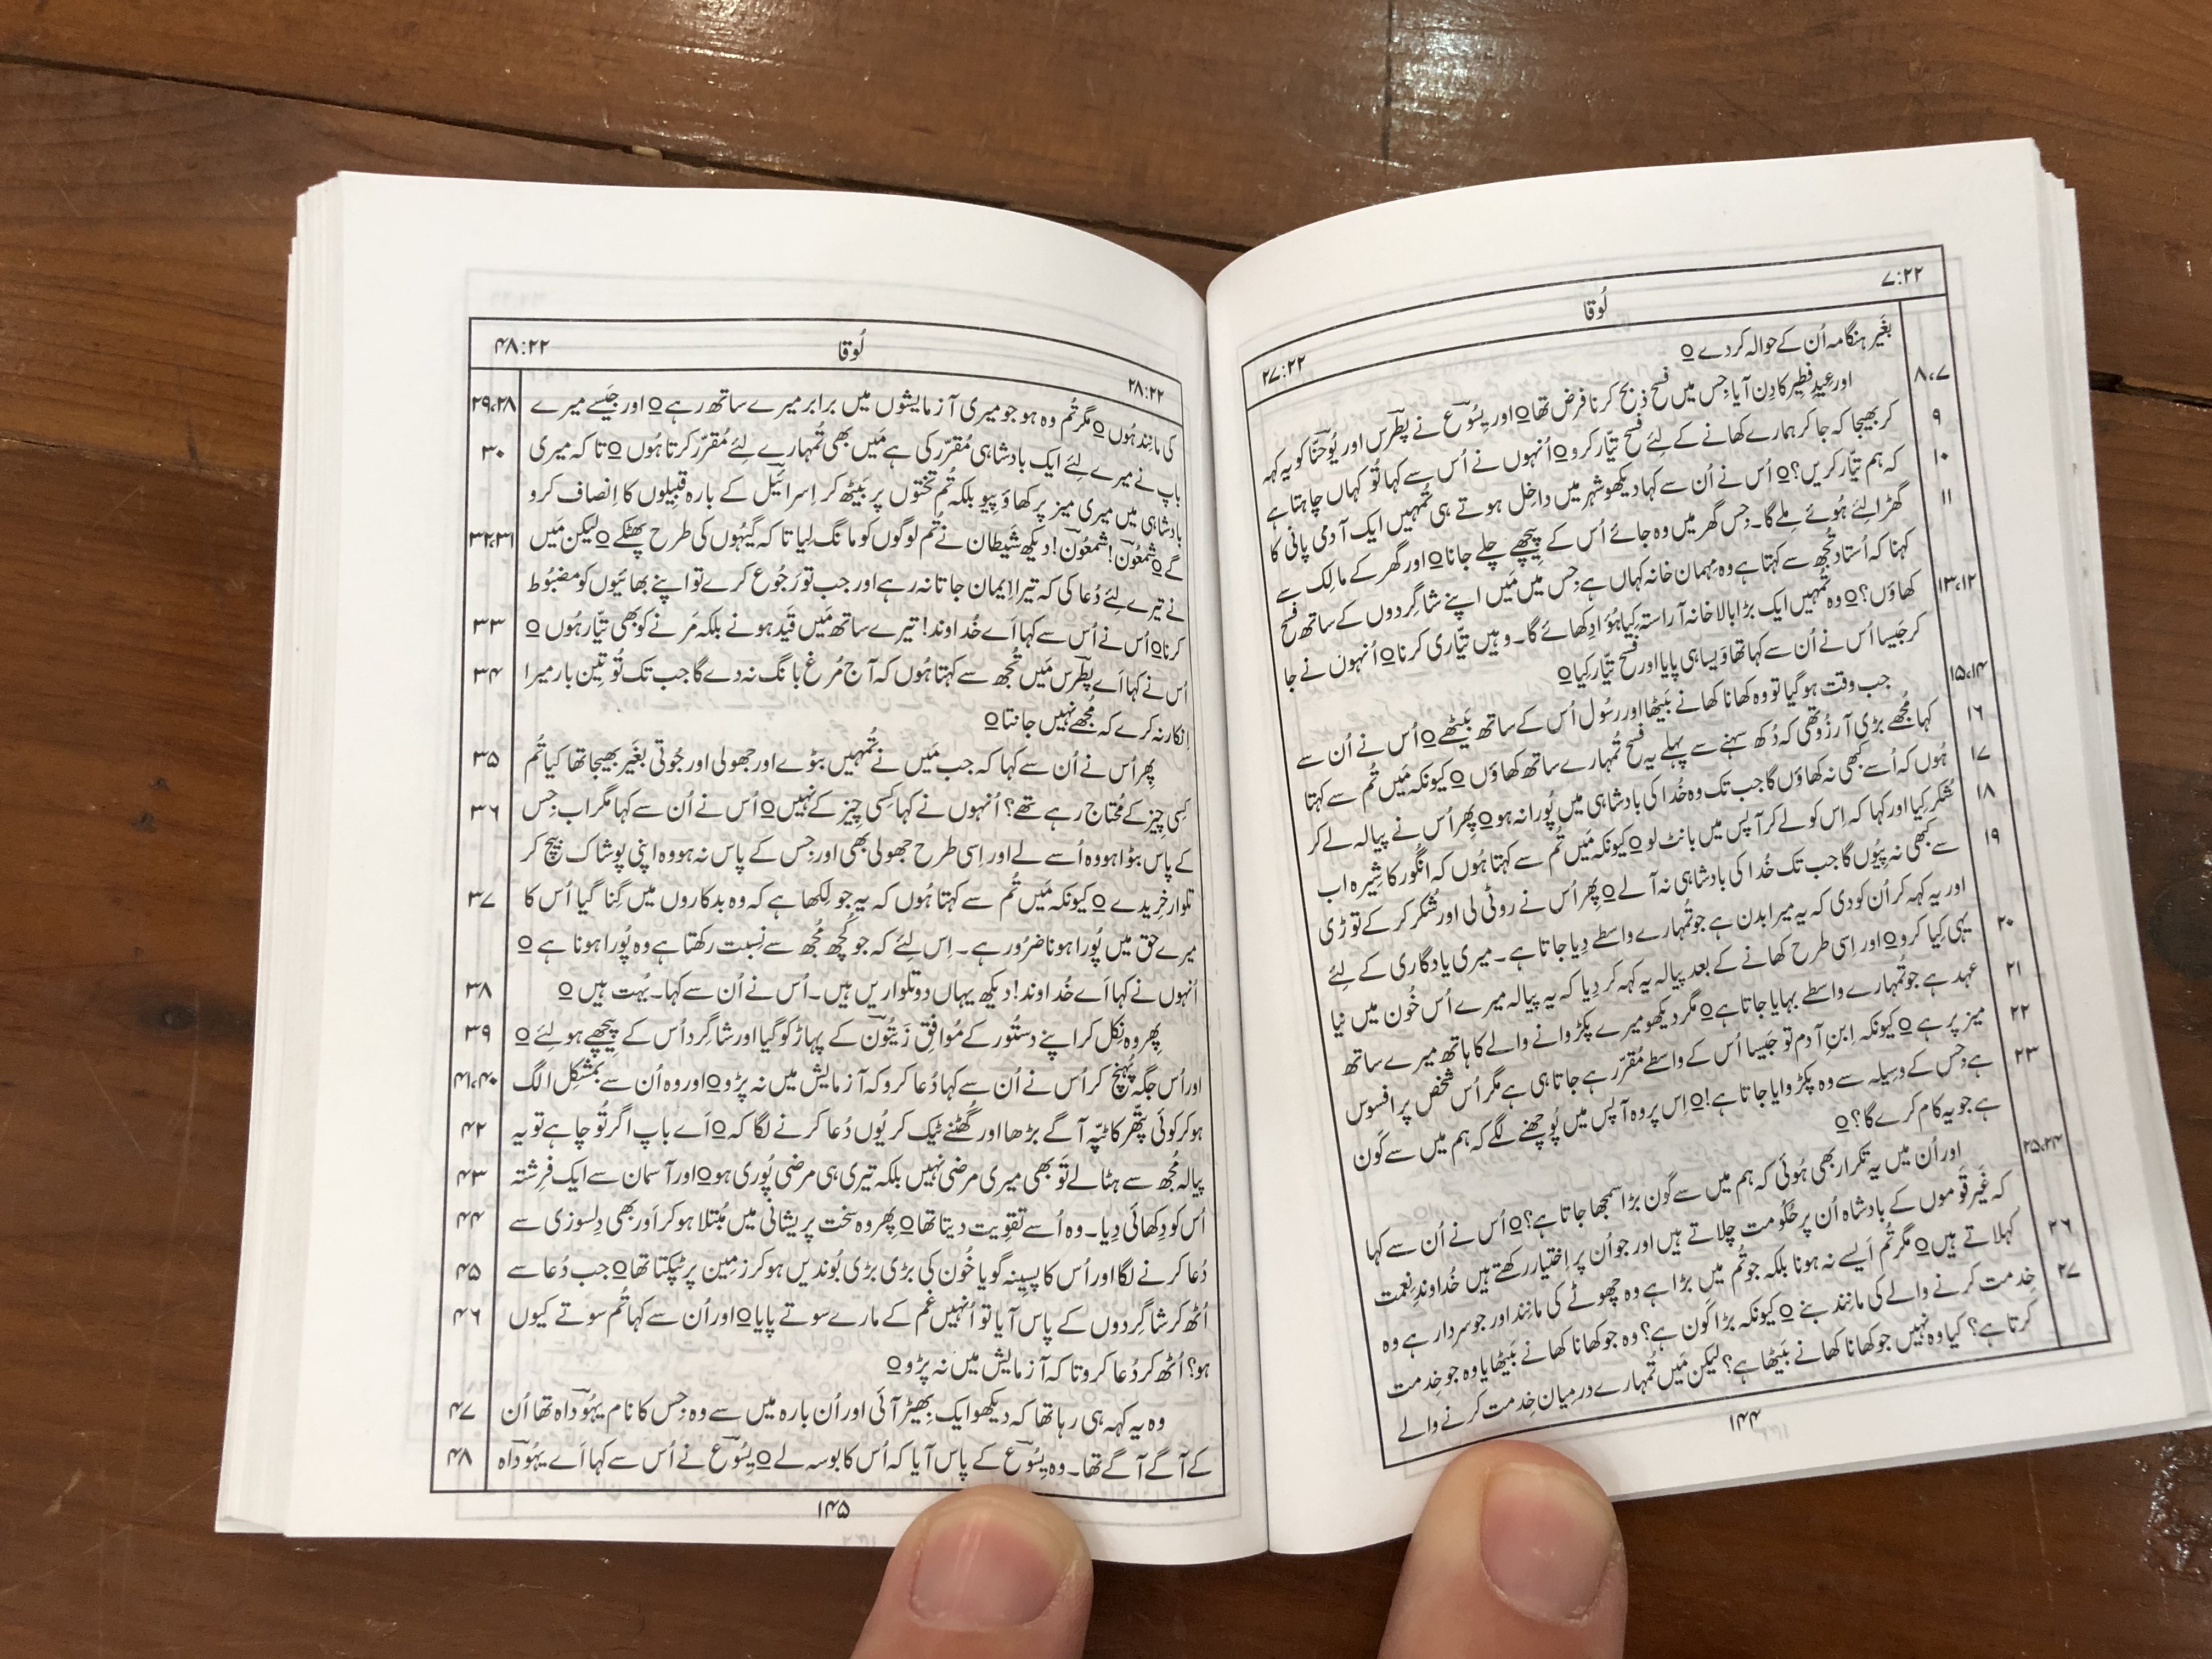 ۷:۲۲
لُوقا
۲۷:۲۲
بغَیر ہنگامہ اُن کے حوالہ کر دے ۝
۸،۷ اور عِیدِ فطِیر کا دِن آیا جِس میں فسح ذبح کرنا فرض تھا ۝ اور یِسُوع نے پطرس اور یُوحنّا کو یہ کہہ
۹ کر بھیجا کہ جا کر ہمارے کھانے کے لِئے فسح تیّار کرو ۝ اُنہوں نے اُس سے کہا تُو کہاں چاہتا ہے
۱۰ کہ ہم تیّار کریں؟ ۝ اُس نے اُن سے کہا دیکھو شہر میں داخِل ہوتے ہی تُمہیں ایک آدمی پانی کا
۱۱ گھڑا لِئے ہُوئے مِلے گا۔ جِس گھر میں وہ جائے اُس کے پِیچھے چلے جانا ۝ اور گھر کے مالِک سے
کہنا کہ اُستاد تُجھ سے کہتا ہے وہ مِہمان خانہ کہاں ہے جِس میں مَیں اپنے شاگِردوں کے ساتھ فسح
۱۳،۱۲ کھاؤں؟ ۝ وہ تُمہیں ایک بڑا بالاخانہ آراستہ کِیا ہُؤا دِکھائے گا۔ وہیں تیّاری کرنا ۝ اُنہوں نے جا
کر جَیسا اُس نے اُن سے کہا تھا وَیسا ہی پایا اور فسح تیّار کِیا ۝
۱۵،۱۴ جب وقت ہو گیا تو وہ کھانا کھانے بَیٹھا اور رسُول اُس کے ساتھ بَیٹھے ۝ اُس نے اُن سے
۱۶ کہا مُجھے بڑی آرزُو تھی کہ دُکھ سہنے سے پہلے یہ فسح تُمہارے ساتھ کھاؤں ۝ کیونکہ مَیں تُم سے کہتا
۱۷ ہُوں کہ اُسے کبھی نہ کھاؤں گا جب تک وہ خُدا کی بادشاہی میں پُورا نہ ہو ۝ پِھر اُس نے پیالہ لے کر
۱۸ شُکر کِیا اور کہا کہ اِس کو لے کر آپس میں بانٹ لو ۝ کیونکہ مَیں تُم سے کہتا ہُوں کہ انگُور کا شِیرہ اب
۱۹ سے کبھی نہ پِیُوں گا جب تک خُدا کی بادشاہی نہ آ لے ۝ پِھر اُس نے روٹی لی اور شُکر کر کے توڑی
اور یہ کہہ کر اُن کو دی کہ یہ میرا بدن ہے جو تُمہارے واسطے دِیا جاتا ہے۔ میری یادگاری کے لِئے
۲۰ یہی کِیا کرو ۝ اور اِسی طرح کھانے کے بعد پیالہ یہ کہہ کر دِیا کہ یہ پیالہ میرے اُس خُون میں نیا
۲۱ عہد ہے جو تُمہارے واسطے بہایا جاتا ہے ۝ مگر دیکھو میرے پکڑوانے والے کا ہاتھ میرے ساتھ
۲۲ میز پر ہے ۝ کیونکہ اِبنِ آدم تو جَیسا اُس کے واسطے مُقرّر ہے جاتا ہی ہے مگر اُس شخص پر افسوس
۲۳ ہے جِس کے وسِیلہ سے وہ پکڑوایا جاتا ہے! ۝ اِس پر وہ آپس میں پُوچھنے لگے کہ ہم میں سے کَون
ہے جو یہ کام کرے گا؟ ۝
۲۵،۲۴ اور اُن میں یہ تکرار بھی ہُوئی کہ ہم میں سے کَون بڑا سمجھا جاتا ہے؟ ۝ اُس نے اُن سے کہا
کہ غَیر قَوموں کے بادشاہ اُن پر حُکُومت چلاتے ہیں اور جو اُن پر اِختیار رکھتے ہیں خُداوندِ نِعمت
۲۶ کہلاتے ہیں ۝ مگر تُم اَیسے نہ ہونا بلکہ جو تُم میں بڑا ہے وہ چھوٹے کی مانِند اور جو سردار ہے وہ
۲۷ خِدمت کرنے والے کی مانِند بنے ۝ کیونکہ بڑا کَون ہے؟ وہ جو کھانا کھانے بَیٹھا یا وہ جو خِدمت
کرتا ہے؟ کیا وہ نہیں جو کھانا کھانے بَیٹھا ہے؟ لیکن مَیں تُمہارے درمیان خِدمت کرنے والے
۱۴۴
۲۸:۲۲
لُوقا
۴۸:۲۲
۲۹،۲۸ کی مانِند ہُوں ۝ مگر تُم وہ ہو جو میری آزمایشوں میں برابر میرے ساتھ رہے ۝ اور جَیسے میرے
۳۰ باپ نے میرے لِئے ایک بادشاہی مُقرّر کی ہے مَیں بھی تُمہارے لِئے مُقرّر کرتا ہُوں ۝ تاکہ میری
بادشاہی میں میری میز پر کھاؤ پِیو بلکہ تُم تختوں پر بَیٹھ کر اِسرائیل کے بارہ قبِیلوں کا اِنصاف کرو
۳۲،۳۱ گے ۝ شمعُون! شمعُون! دیکھ شَیطان نے تُم لوگوں کو مانگ لِیا تاکہ گیہُوں کی طرح پھٹکے ۝ لیکن مَیں
نے تیرے لِئے دُعا کی کہ تیرا اِیمان جاتا نہ رہے اور جب تُو رجُوع کرے تو اپنے بھائیوں کو مضبُوط
۳۳ کرنا ۝ اُس نے اُس سے کہا اَے خُداوند! تیرے ساتھ مَیں قَید ہونے بلکہ مَرنے کو بھی تیّار ہُوں ۝
۳۴ اُس نے کہا اَے پطرس مَیں تُجھ سے کہتا ہُوں کہ آج مُرغ بانگ نہ دے گا جب تک تُو تِین بار میرا
اِنکار نہ کرے کہ مُجھے نہیں جانتا ۝
۳۵ پِھر اُس نے اُن سے کہا کہ جب مَیں نے تُمہیں بٹوے اور جھولی اور جُوتی بغَیر بھیجا تھا کیا تُم
۳۶ کِسی چِیز کے مُحتاج رہے تھے؟ اُنہوں نے کہا کِسی چِیز کے نہیں ۝ اُس نے اُن سے کہا مگر اب جِس
کے پاس بٹوا ہو وہ اُسے لے اور اِسی طرح جھولی بھی اور جِس کے پاس نہ ہو وہ اپنی پوشاک بیچ کر
۳۷ تلوار خرِیدے ۝ کیونکہ مَیں تُم سے کہتا ہُوں کہ یہ جو لِکھا ہے کہ وہ بدکاروں میں گِنا گیا اُس کا
میرے حق میں پُورا ہونا ضرُور ہے۔ اِس لِئے کہ جو کُچھ مُجھ سے نِسبت رکھتا ہے وہ پُورا ہونا ہے ۝
۳۸ اُنہوں نے کہا اَے خُداوند! دیکھ یہاں دو تلواریں ہیں۔ اُس نے اُن سے کہا۔ بہُت ہیں ۝
۳۹ پِھر وہ نِکل کر اپنے دستُور کے مُوافِق زَیتُون کے پہاڑ کو گیا اور شاگِرد اُس کے پِیچھے ہو لِئے ۝
۴۱،۴۰ اور اُس جگہ پُہنچ کر اُس نے اُن سے کہا دُعا کرو کہ آزمایش میں نہ پڑو ۝ اور وہ اُن سے بمُشکِل الگ
۴۲ ہو کر کوئی پتّھر کا ٹپّہ آگے بڑھا اور گُھٹنے ٹیک کر یُوں دُعا کرنے لگا کہ ۝ اَے باپ اگر تُو چاہے تو یہ
۴۳ پیالہ مُجھ سے ہٹا لے تَو بھی میری مرضی نہیں بلکہ تیری ہی مرضی پُوری ہو ۝ اور آسمان سے ایک فرِشتہ
۴۴ اُس کو دِکھائی دِیا۔ وہ اُسے تقوِیت دیتا تھا ۝ پِھر وہ سخت پریشانی میں مُبتلا ہو کر اَور بھی دِلسوزی سے
۴۵ دُعا کرنے لگا اور اُس کا پسِینہ گویا خُون کی بڑی بڑی بُوندیں ہو کر زمِین پر ٹپکتا تھا ۝ جب دُعا سے
۴۶ اُٹھ کر شاگِردوں کے پاس آیا تو اُنہیں غم کے مارے سوتے پایا ۝ اور اُن سے کہا تُم سوتے کیوں
ہو؟ اُٹھ کر دُعا کرو تاکہ آزمایش میں نہ پڑو ۝
۴۷ وہ یہ کہہ ہی رہا تھا کہ دیکھو ایک بِھیڑ آئی اور اُن بارہ میں سے وہ جِس کا نام یہُوداہ تھا اُن
۴۸ کے آگے آگے تھا۔ وہ یِسُوع کے پاس آیا کہ اُس کا بوسہ لے ۝ یِسُوع نے اُس سے کہا اَے یہُوداہ
۱۴۵